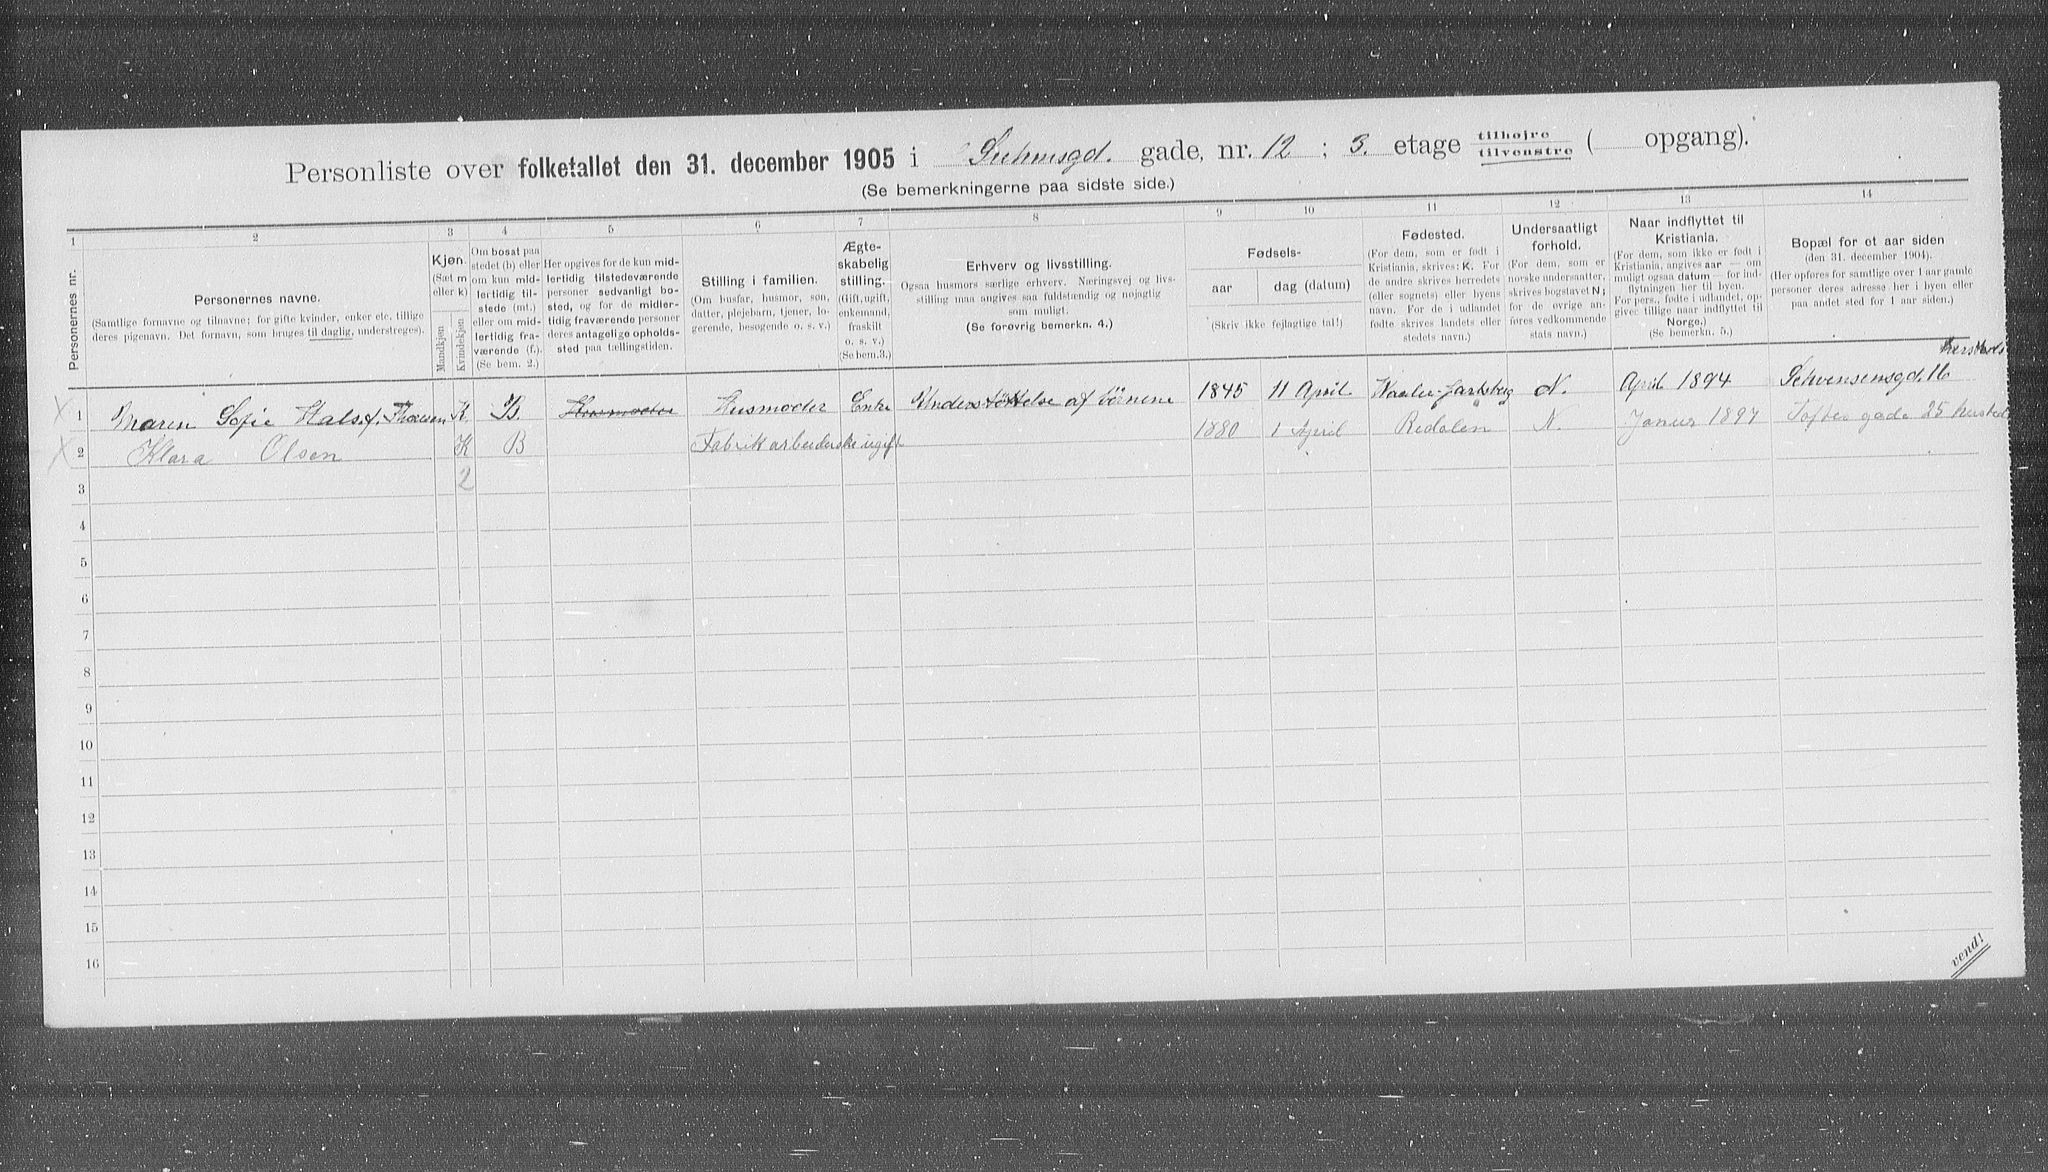 Personliste over folketallet den 31. december 1905 i gade, nr. 12 ; 3. etage tilhøjre tilvenstre ( opgang).
(Se bemerkningerne paa sidste side.)
1 2 3 4 5 6 7 8 9 10 11 12 13 14
Personernes nr.
Personernes navne.
(Samtlige fornavne og tilnavne; for gifte kvinder, enker etc. tillige
deres pigenavn. Det fornavn, som bruges til daglig, understreges).
Kjøn.
(Sæt m
eller k)
Mandkjøn
Kvindekjøn
Om bosat paa
stedet (b) eller
om kun mid-
lertidig til-
stede (mt.)
eller om mid-
lertidig fra-
værende (f.).
(Se bem. 2.)
Her opgives for de kun mid-
lertidig tilstedeværende
personer sedvanligt bo-
sted, og for de midler-
tidig fraværende personer
deres antagelige opholds-
sted paa tællingstiden.
Stilling i familien.
(Om husfar, husmor, søn,
datter, plejebarn, tjener, lo-
gerende, besøgende o. s. v.)
Ægte-
skabelig
stilling.
(Gift, ugift,
enkemand,
fraskilt
o. s. v.)
(Se bem.3.)
Erhverv og livsstilling.
Ogsaa husmors særlige erhverv. Næringsvej og livs-
stilling maa angives saa fuldstændig og nøjagtig
som muligt.
(Se forøvrig bemerkn. 4.)
Fødsels-
aar dag (datum)
(Skriv ikke fejlagtige tal!)
Fødested.
(For dem, som er født i
Kristiania, skrives: K. For
de andre skrives herredets
(eller sognets) eller byens
navn. For de i udlandet
fødte skrives landets eller
stedets navn.)
Undersaatligt
forhold.
(For dem, som er
norske undersaatter,
skrives bogstavet N;
for de øvrige an-
føres vedkommende
stats navn.)
Naar indflyttet til
Kristiania.
(For dem, som ikke er født i
Kristiania, angives aar — om
muligt ogsaa datum — for ind-
flytningen her til byen.
For pers., fødte i udlandet, op-
giver tillige naar indflyttet til
Norge.)
(Se bemerkn. 5.)
Bopæl for et aar siden
(den 31. december 1904).
(Her opføres for samtlige over 1 aar gamle
personer deres adresse her i byen eller
paa andet sted for 1 aar siden.)
1 Maren Sofie Hals f. K. B. Husmoder Husmoder Enke Understøttelse af børnene 1845 11 April Vaaler-Jarlsberg N. April 1894 16
2 Klara Olsen K B Fabrikarbeiderske ugift 1880 1 April Redalen N. Januar 1897 Toftes gade 25
2
3
4
5
6
7
8
9
10
11
12
13
14
15
16
vend!